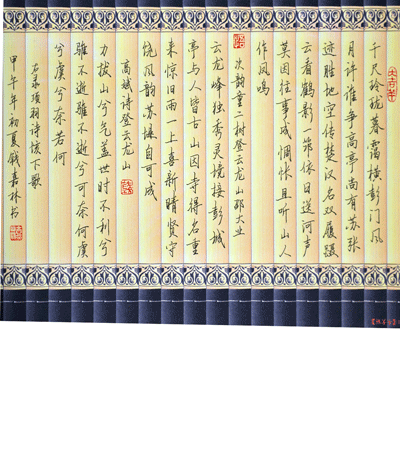 千尺玲珑暮霭横彭门风
月许谁争高亭尚有苏张
迹胜地空传楚汉名双履蹑
云看鹤影一筇依日送河声
莫因往事成惆怅且听山人
作凤鸣
次韵童二树登云龙山邵大业
云龙峰独秀灵境接彭城
亭与人皆古山因寺得名重
来惊旧雨一上喜新晴贤守
饶风韵苏髯自可成
高斌诗登云龙山
力拔山兮气盖世时不利兮
骓不逝骓不逝兮可奈何虞
兮虞兮奈若何
右录项羽诗垓下歌
甲午年初夏钱嘉林书